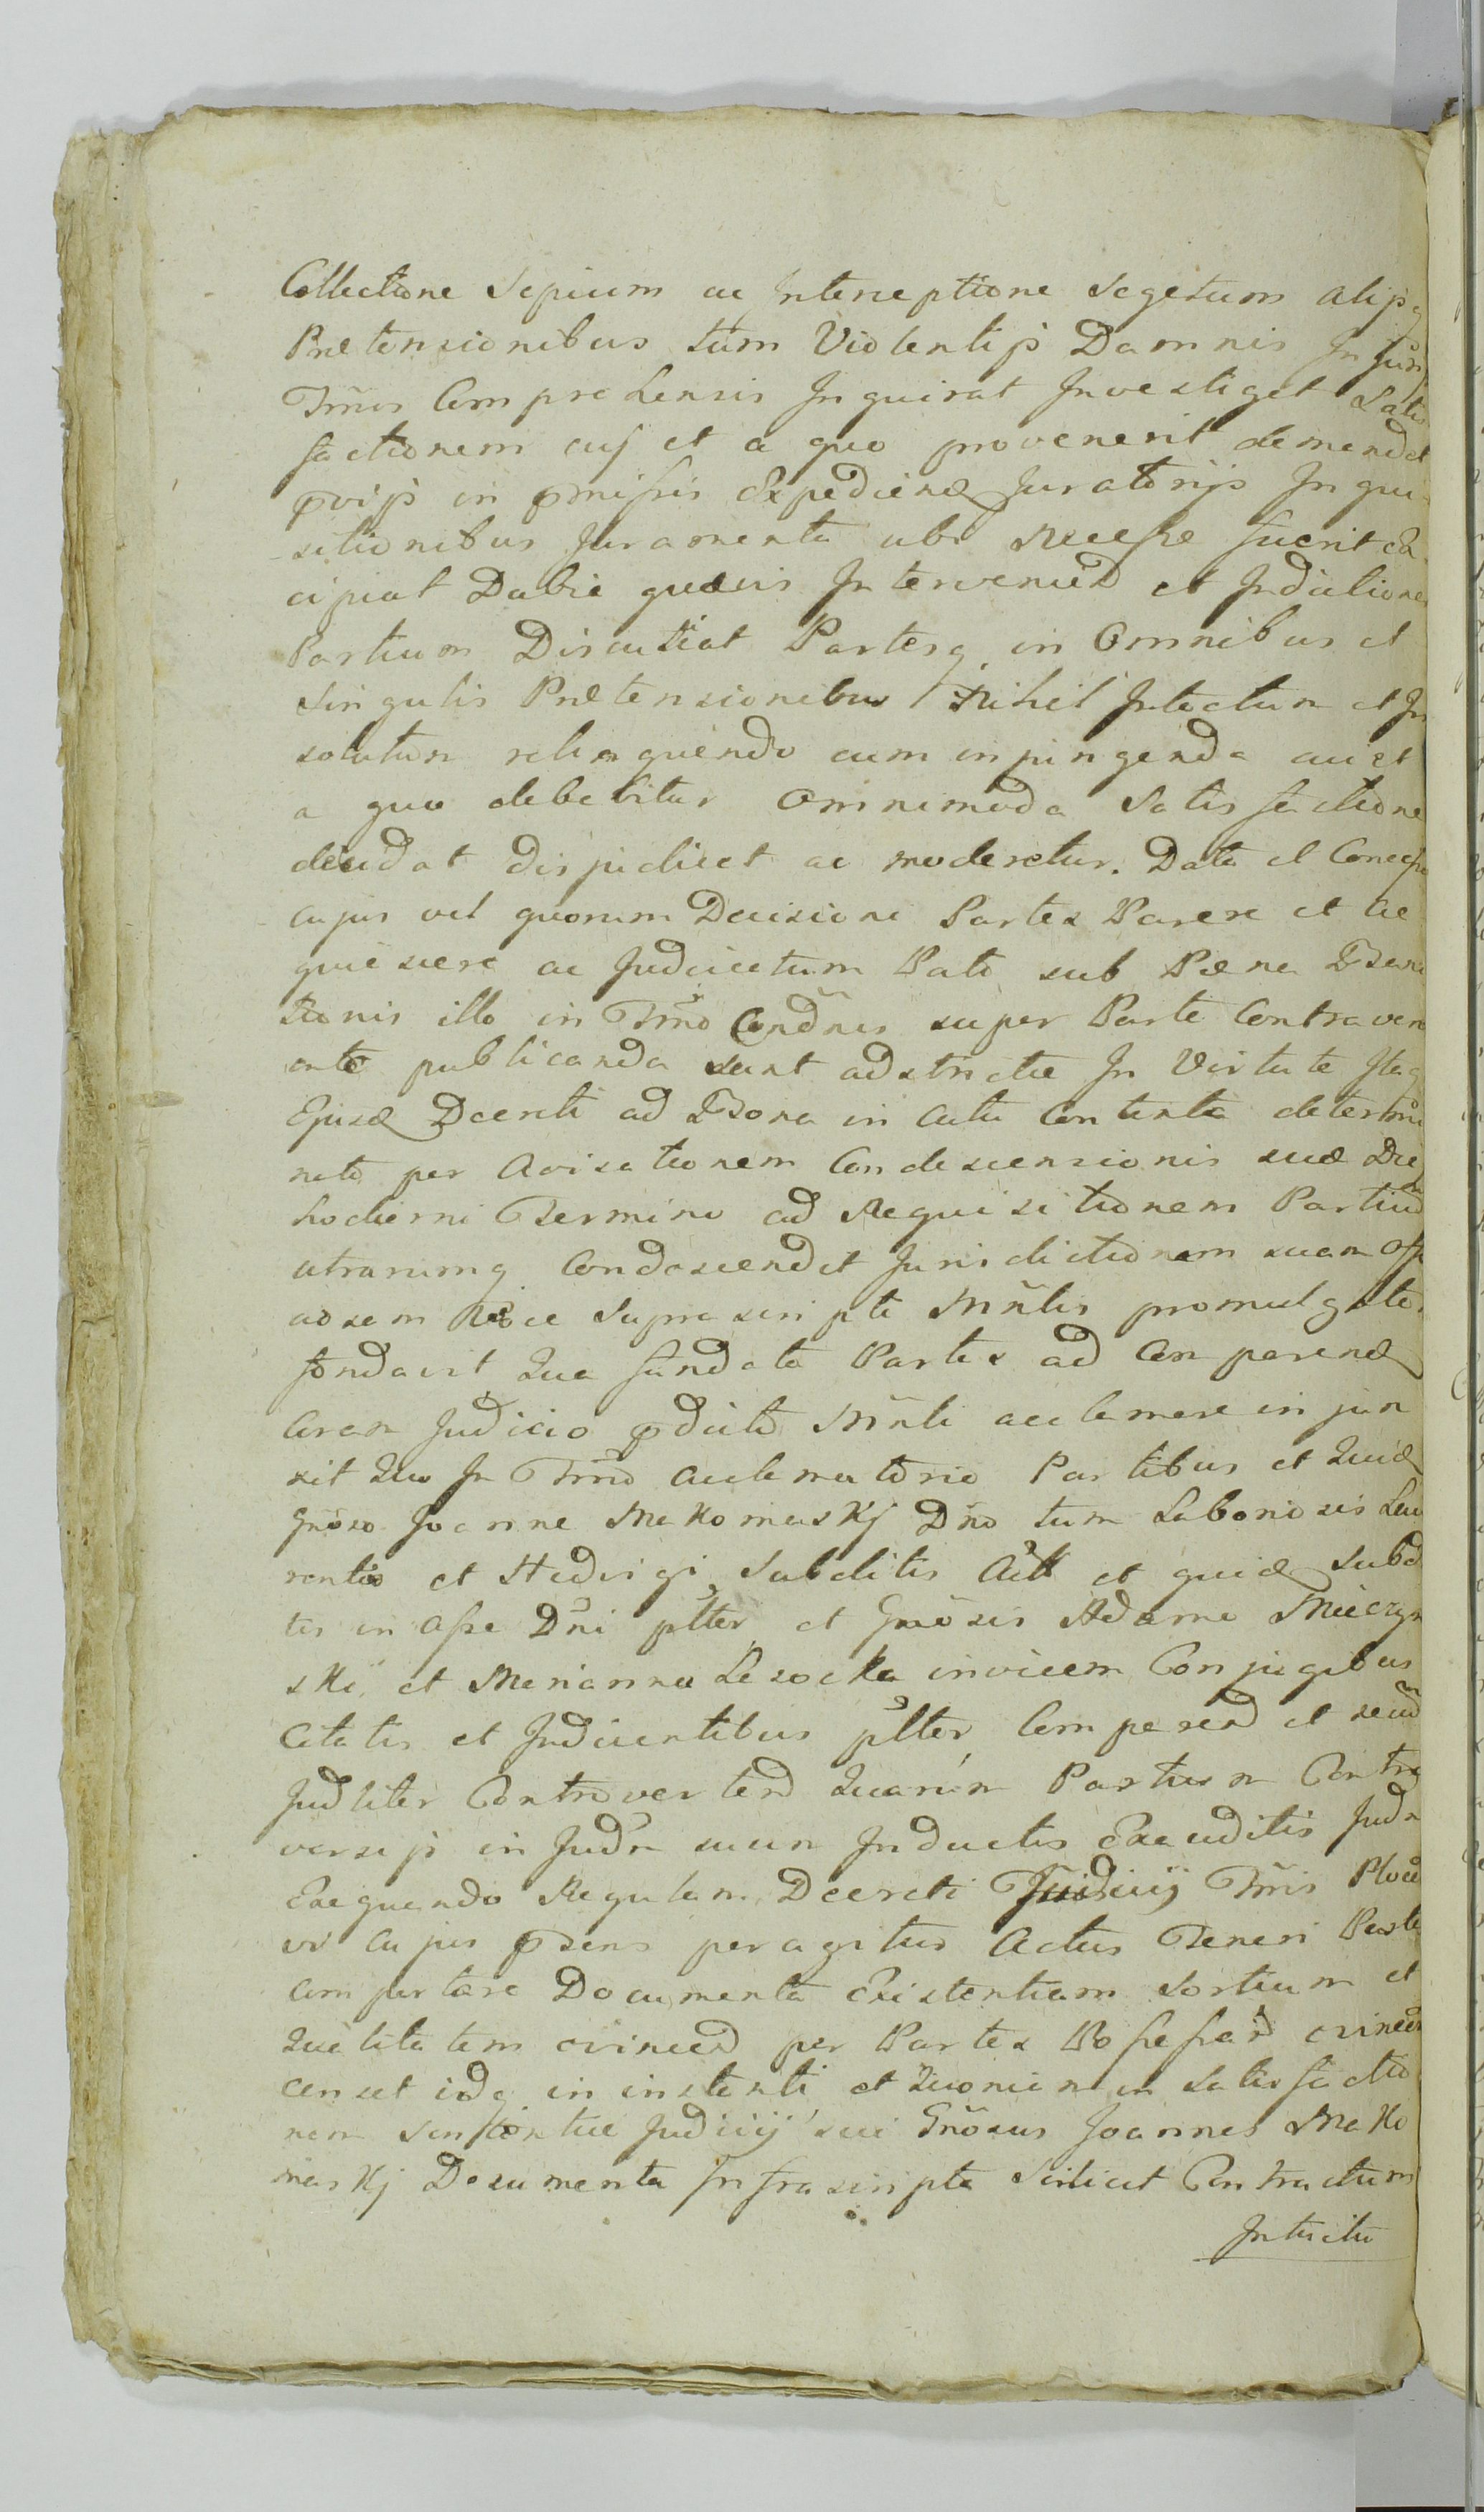 Collectione Sepium ac Interceptione Segetum alijsq
Prætensionibus tum Violentijs Damnis In
Tmis Comprehensis Inquirat Investiget Satis
factionem cuj et a quo provenerit demandet
pvijs in pmissis Expediend Juratorijs Inqui
sitionibus Juramenta ubi necesse fuerit Ex
cipiat Dubia quævis Interveniend et Inductiones
Partium Discutiat Partesq in Omnibus et
Singulis Prætensionibus Nihil Intactum et In
solutum relinquendo cum inpingenda cui et
a quo debebitur Omnimoda Satisfactione
decidat disjudicet ac moderetur. Data et Concessa
cujus vel quorum Decisioni Partes Parere et Ac
quiescere ac Judicatum Pati sub Pæna Bani
tionis illo in Tmo Condnis super Parte Contraveni
ente publicanda sunt adstrictæ In Virtute Itaq
Ejusd Decreti ad Bona in Actu Contenta determi
nato per Avisationem Condescensionis suæ Die
hodierni Termino ad Requisitionem Partium
utrarumq Condescendit Jurisdictionem suam Offi
aosam Voce Suprascripti Mnlis promulgato
fundavit Qua fundata Partes ad Comparend
Coram Judicio pdicto Mnli acclamare injun
xit Quo In Tmo acclamatorio Partibus et Quid
Gnoso Joanne Makomaskj Dno tum Laboriosis Lau
rentio et Hedvigi Subditis Act et quid Subdi
tis in Asse Dni plter et Gnosis Adamo Mieczyn
ski et Marianna Lesocka invicem Conjugibus
Citatis et Inducentibus plter Comparend et secum
Judliter Controvertend Quarum Partium Contro
versijs in Judm suum Inductis Exauditis Judm
Exequendo Regulam Decreti Judicij Tmis Ploce
vi cujus psens peragitur Actus Teneri Partes
comportare Documenta Existentiam Sortium et
Qualitatem evincend per Partes Possessar evincend
censet idq in instanti et Quoniam in Satisfactio
nem Sententiæ Judicij sui Gnosus Joannes Mako
maskj Documenta Infrascripta Scilicet Contractum
Intuitu